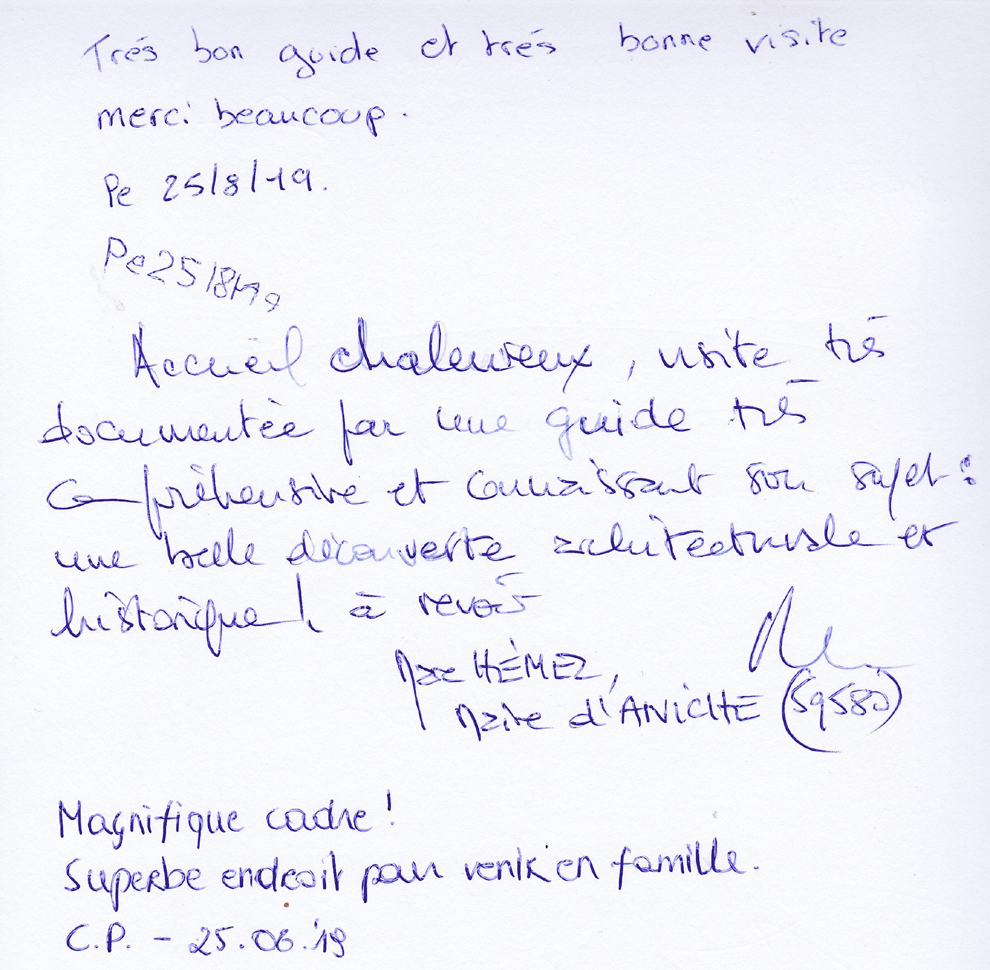 Trés bon guide et trés bonne visite
merci beaucoup.
Pe 25/8/19.
Pe 25/8/19
Accueil chaleureux, visite très
documentée par une guide très
compréhensive et connaissant son sujet :
une belle découverte architecturale et
historique ! à revoir
Marc HÉMEZ,
Maire d'ANICHE (59580)
Magnifique cadre !
Superbe endroit pour venir en famille.
C.P. - 25.06.19